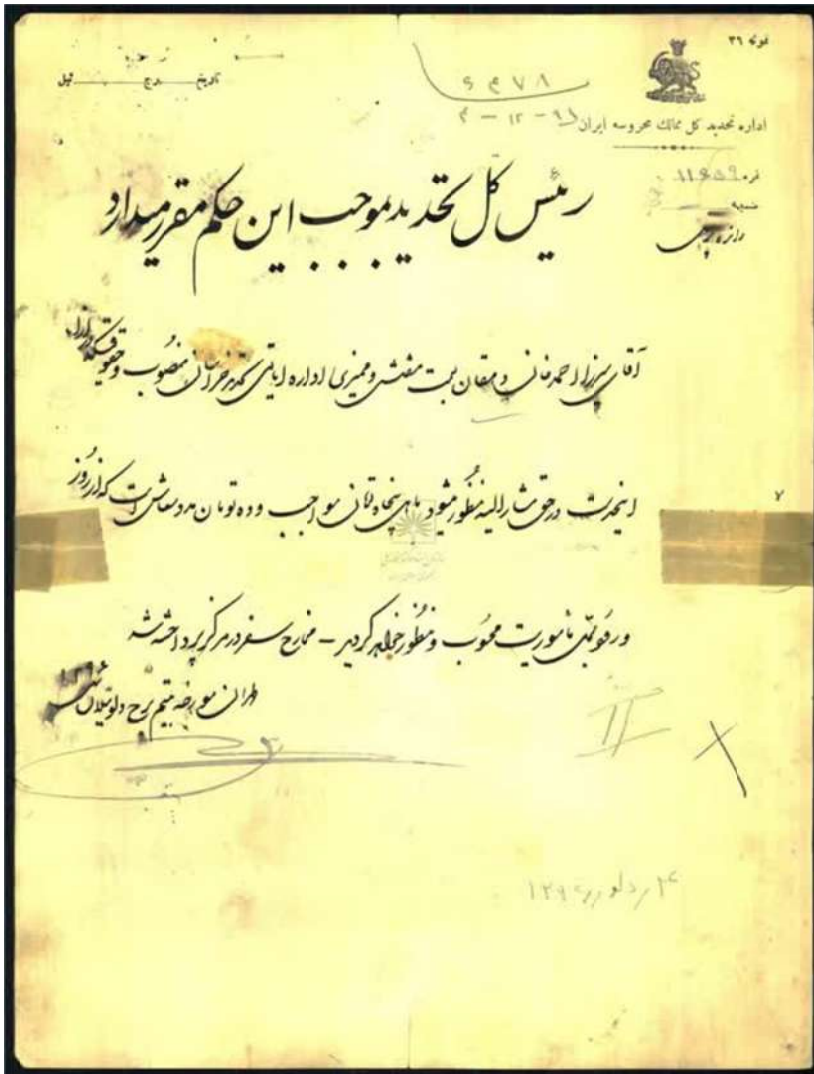 نمونه ۳۶
تاریخ برج ئیل
۶۴۷۸
اداره تحدید کل ممالک محروسه ایران
۴ - ۱۲ - ۹۸
نمره ۱۱۶۵۹
ضمیمه
دائره
رئیس کل تحدید بموجب این حکم مقرر میدارد
آقای میرزا احمد خان دهقان بسمت مفتش و ممیزی اداره ایالتی تحدید خراسان منصوب و حقوقیکه در ازاء
اینخدمت در حق مشارالیه منظور میشود ماهی پنجاه تومان مواجب و ده تومان مدد معاش است که از روز
ورود بمحل مأموریت محسوب و منظور خواهد گردید - مخارج سفر در مرکز پرداخته شد
طهران مورخه بیستم برج دلو
II